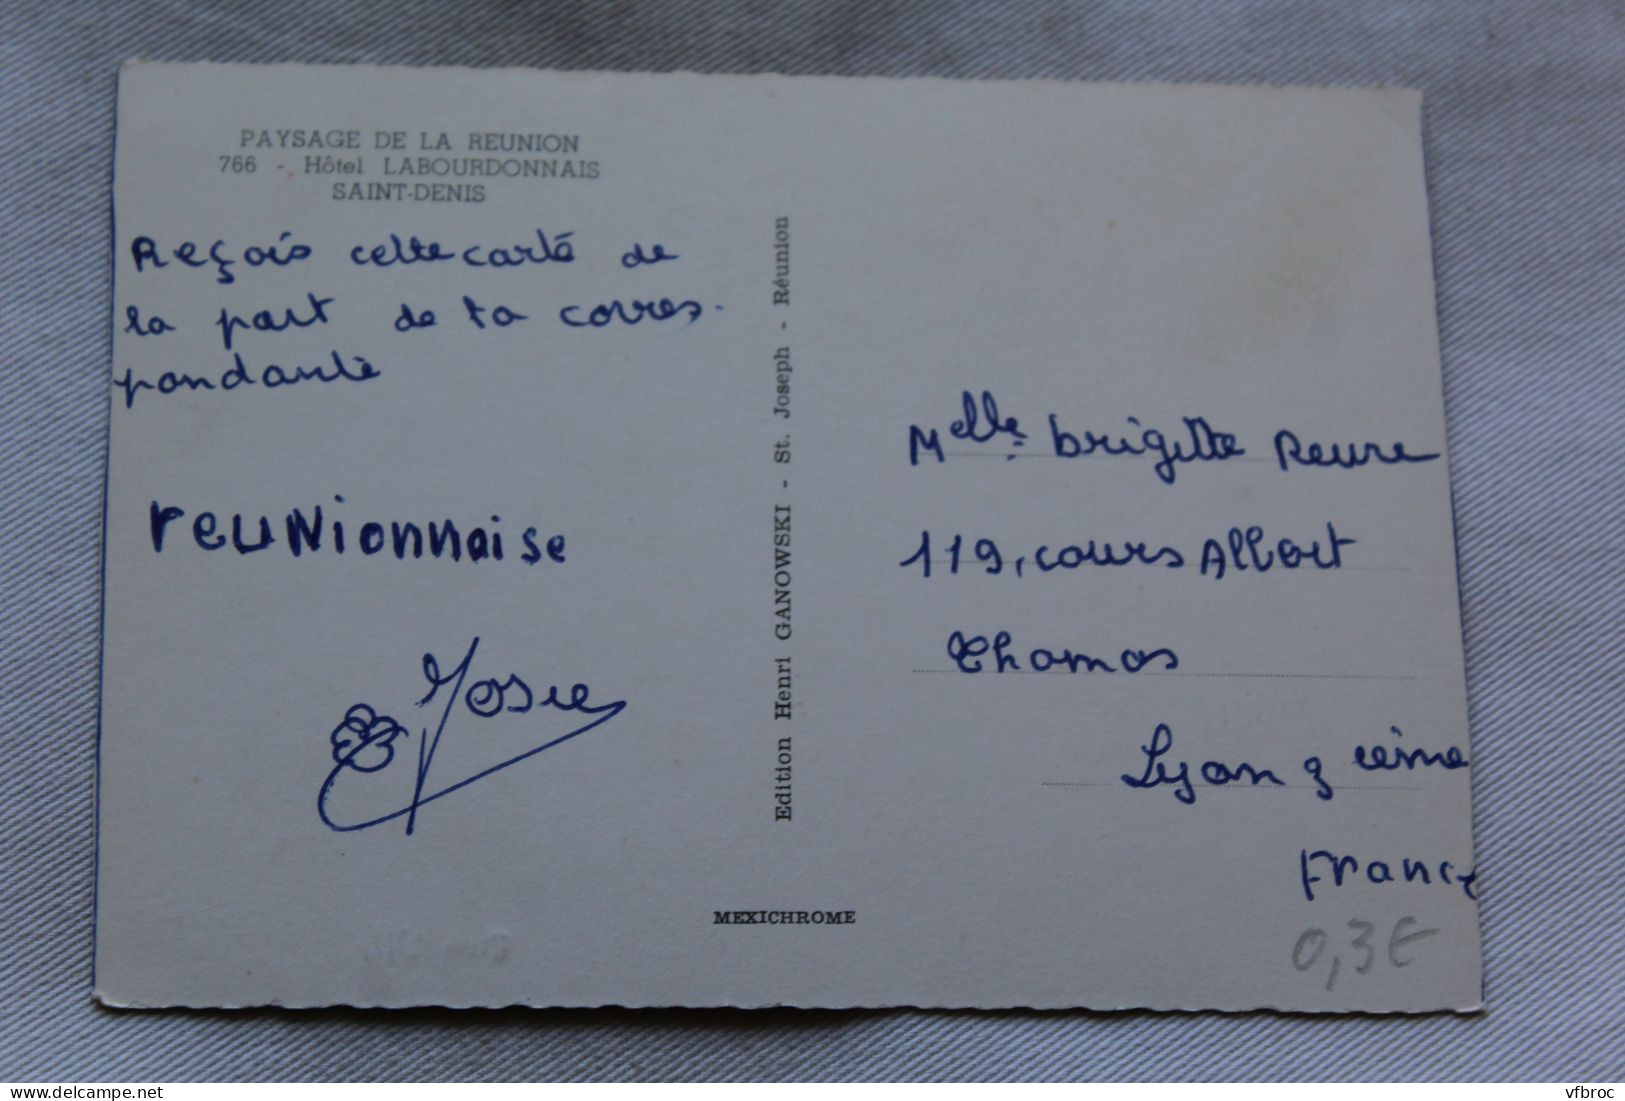 PAYSAGE DE LA REUNION
766 - Hôtel LABOURDONNAIS
SAINT-DENIS
Reçois cette carte de
la part de ta corres-
pondante
reunionnaise
Josie
Edition Henri GANOWSKI - St. Joseph - Réunion
MEXICHROME
Melle brigitte Reure
119, cours Albert
Thomas
Lyon 3 ième
France
0,3€
vfbroc